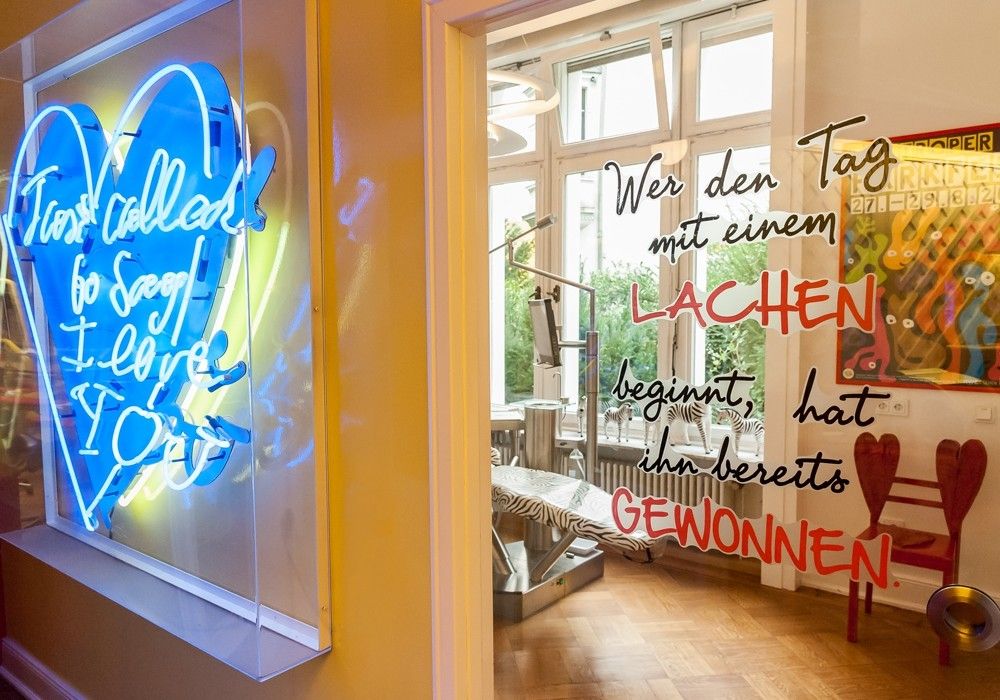 I just called
to Say
I love
You
Wer den Tag
mit einem
LACHEN
beginnt, hat
ihn bereits
GEWONNEN.
27.–29.8.2